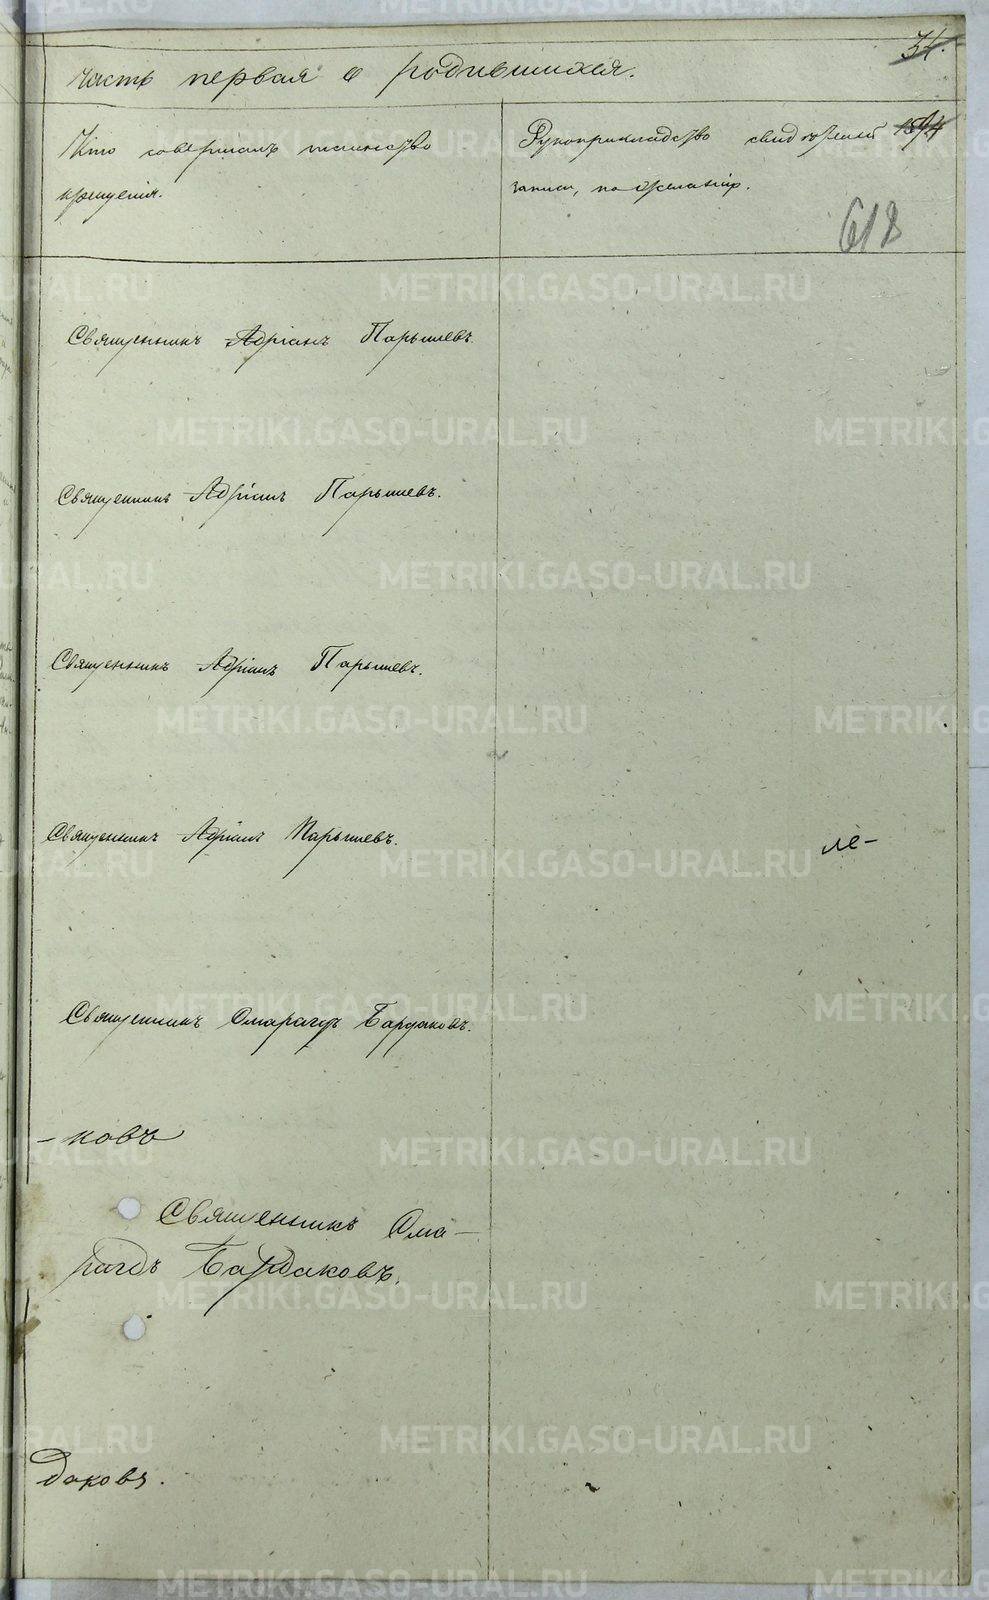 34.
Часть первая о родившихся.
Кто совершалъ таинство
крещенія.
Рукоприкладство свидѣтелей
записи, по желанію.
618
Священникъ Адріанъ Парышевъ.
Священникъ Адріанъ Парышевъ.
Священникъ Адріанъ Парышевъ.
Священникъ Адріанъ Парышевъ.
ле-
Священникъ Смарагдъ Бардаковъ.
- ковъ
Священникъ Сма-
рагдъ Бардаковъ.
даковъ.
METRIKI.GASO-URAL.RU